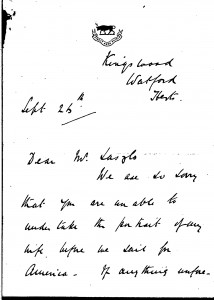 Kingswood
Watford
Herts.
Sept 26th
Dear Mr. Laszlo
We are so sorry
that you are unable to
undertake the portrait of my
wife before we sail for
America - If anything unfore-